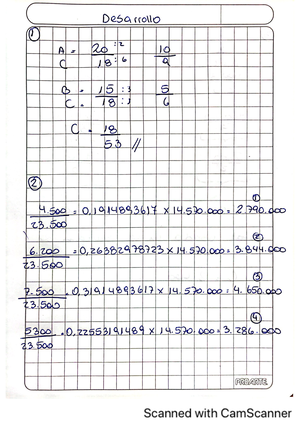 Desarrollo
①
A = 20 :2 10
C 18 :6 9
B = 15 :3 5
C = 18 :3 6
C = 18
53 //
②
①
4.500 = 0,1914893617 x 14.570.000 = 2.790.000
23.500
②
6.200 = 0,26382978723 x 14.570.000 = 3.844.000
23.500
③
7.500 = 0,31914893617 x 14.570.000 = 4.650.000
23.500
④
5300 = 0,22553191489 x 14.570.000 = 3.286.000
23.500
Scanned with CamScanner